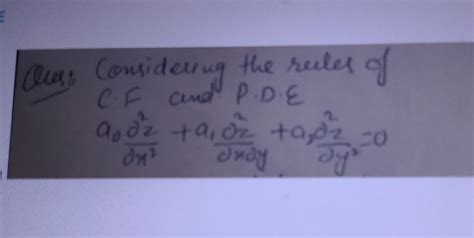 Ques: Considering the rules of
C.F and P.D.E
a₀ ∂²z/∂x² + a₁ ∂²z/∂x∂y + a₂ ∂²z/∂y² = 0